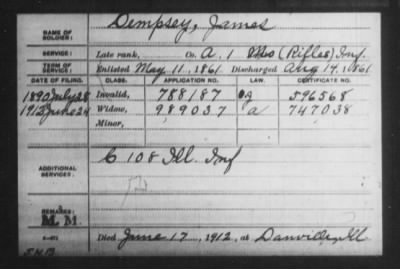 NAME OF SOLDIER: Dempsey, James
SERVICE: Late rank, Co. A, 1 Mo (Rifles) Inf.
TERM OF SERVICE: Enlisted May 11, 1861 Discharged Aug 14, 1861
DATE OF FILING. CLASS. APPLICATION NO. LAW. CERTIFICATE NO.
1890 July 28 Invalid, 788187 596568
1912 June 24 Widow, 989037 a 747038
Minor,
ADDITIONAL SERVICES: C 108 Ill. Inf
REMARKS:
M. M.
Died June 17, 1912, at Danville, Ill